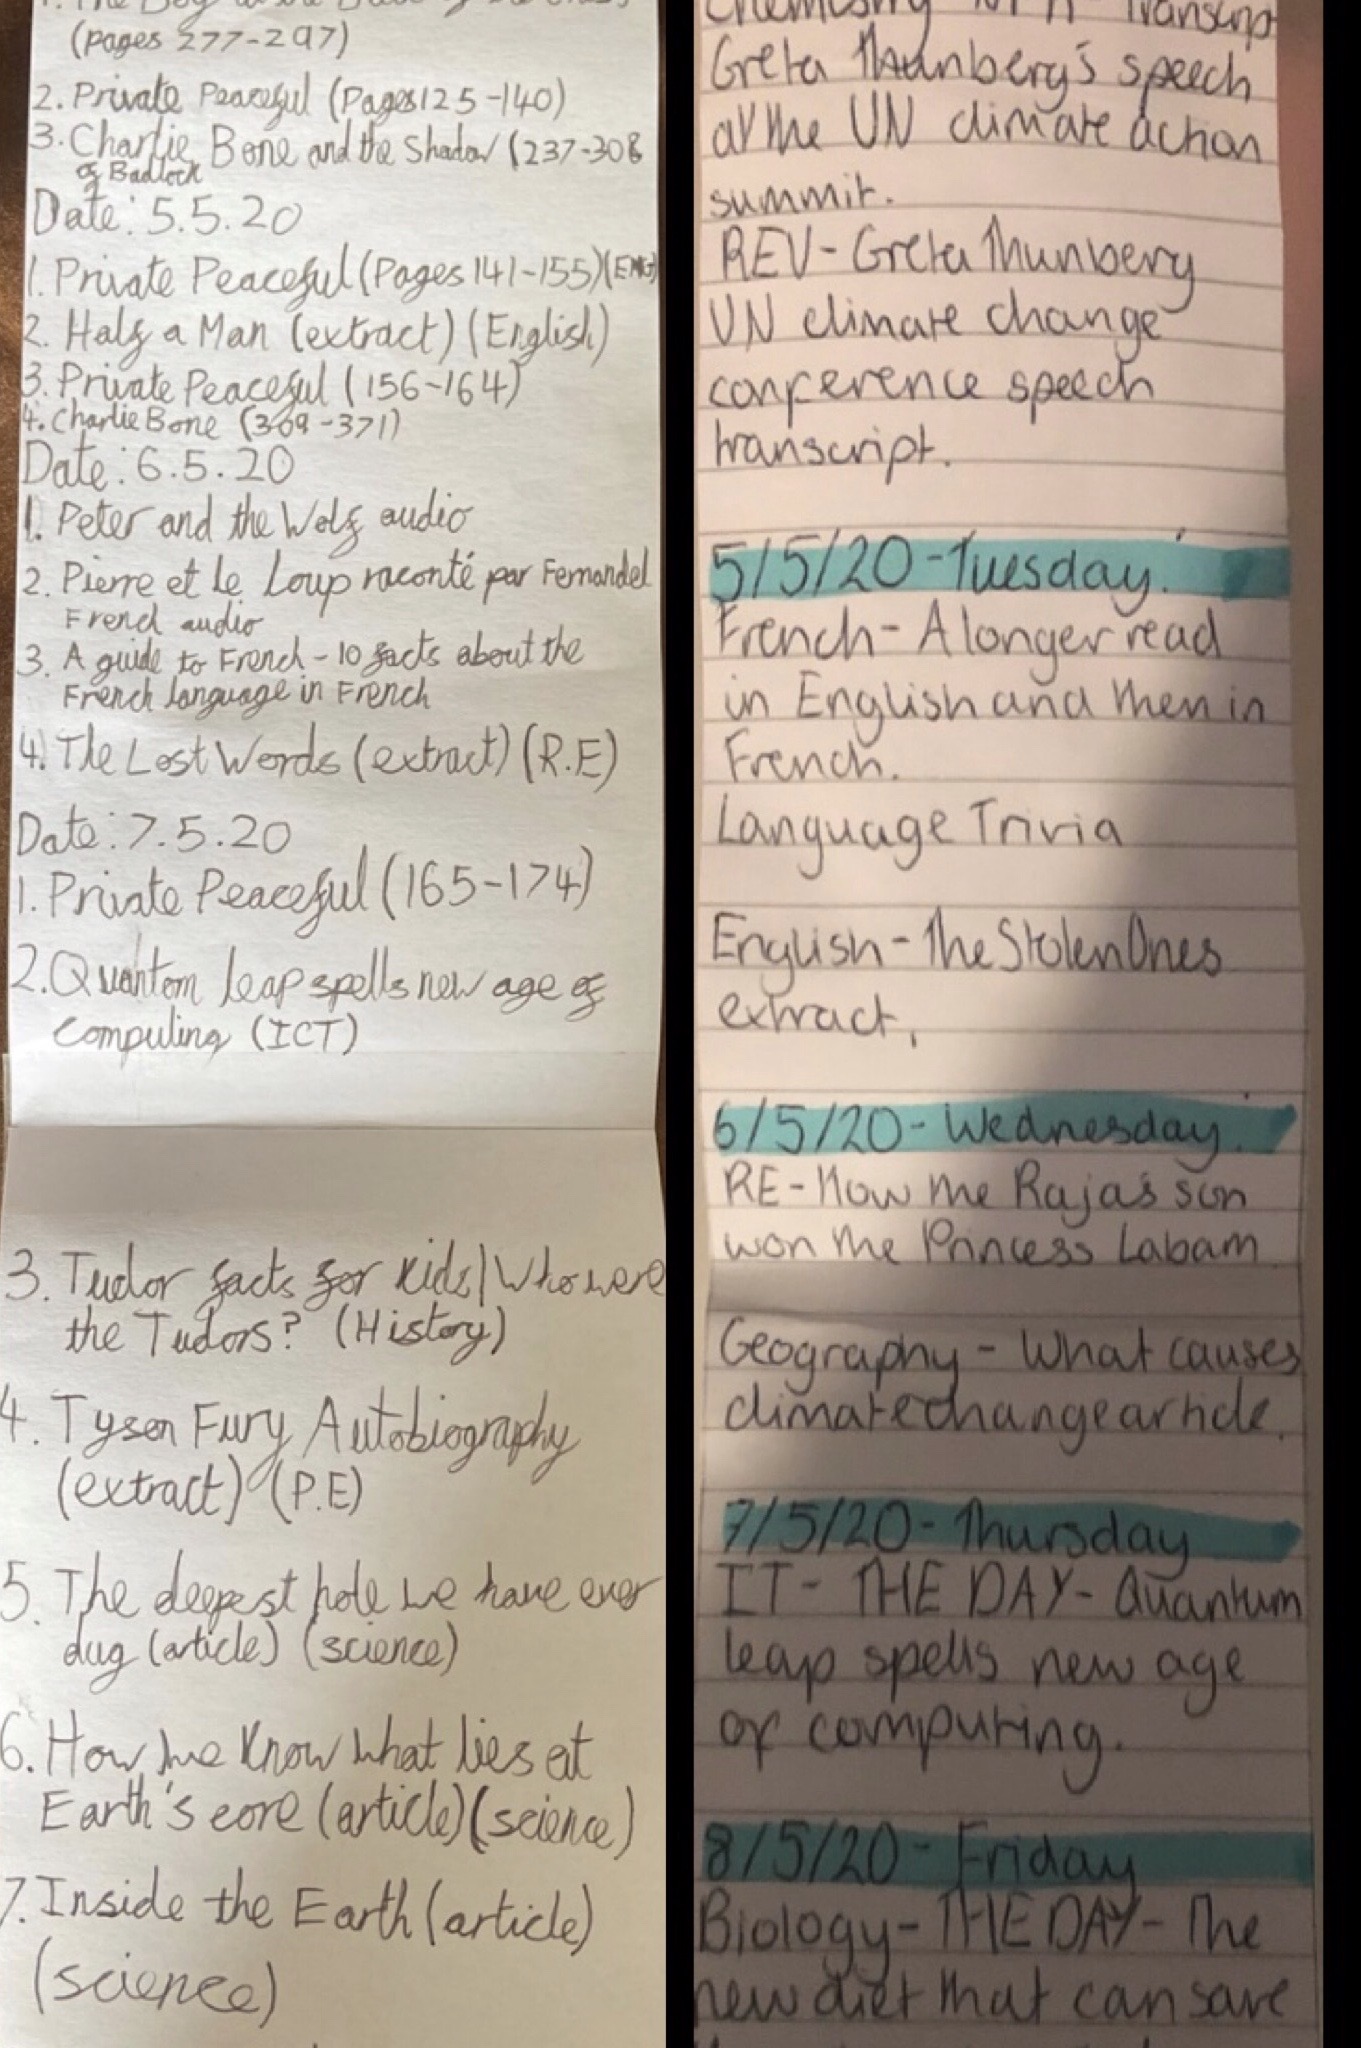 (pages 277-297)
2. Private Peaceful (Pages 125-140)
3. Charlie Bone and the Shadow (237-308
of Badlock
Date: 5.5.20
1. Private Peaceful (Pages 141-155) (ENG)
2. Half a Man (extract) (English)
3. Private Peaceful (156-164)
4. Charlie Bone (309-371)
Date: 6.5.20
1. Peter and the Wolf audio
2. Pierre et Le Loup raconté par Fernandel
French audio
3. A guide to French - 10 facts about the
French language in French
4. The Lost Words (extract) (R.E)
Date: 7.5.20
1. Private Peaceful (165-174)
2. Quantom leap spells new age of
Computing (ICT)
3. Tudor facts for kids | Who were
the Tudors? (History)
4. Tyson Fury Autobiography
(extract) (P.E)
5. The deepest hole we have ever
dug (article) (science)
6. How we know what lies at
Earth's core (article) (science)
7. Inside the Earth (article)
(science)
Greta Thunberg's speech
at the UN climate action
summit.
REV- Greta Thunberg
UN climate change
conference speech
transcript.
5/5/20 - Tuesday.
French - A longer read
in English and then in
French.
Language Trivia
English - The Stolen Ones
extract.
6/5/20 - Wednesday.
RE - How the Raja's son
won the Princess Labam
Geography - What causes
climate change article.
7/5/20 - Thursday
IT - THE DAY - Quantum
leap spells new age
of computing.
8/5/20 - Friday
Biology - THE DAY - The
new diet that can save